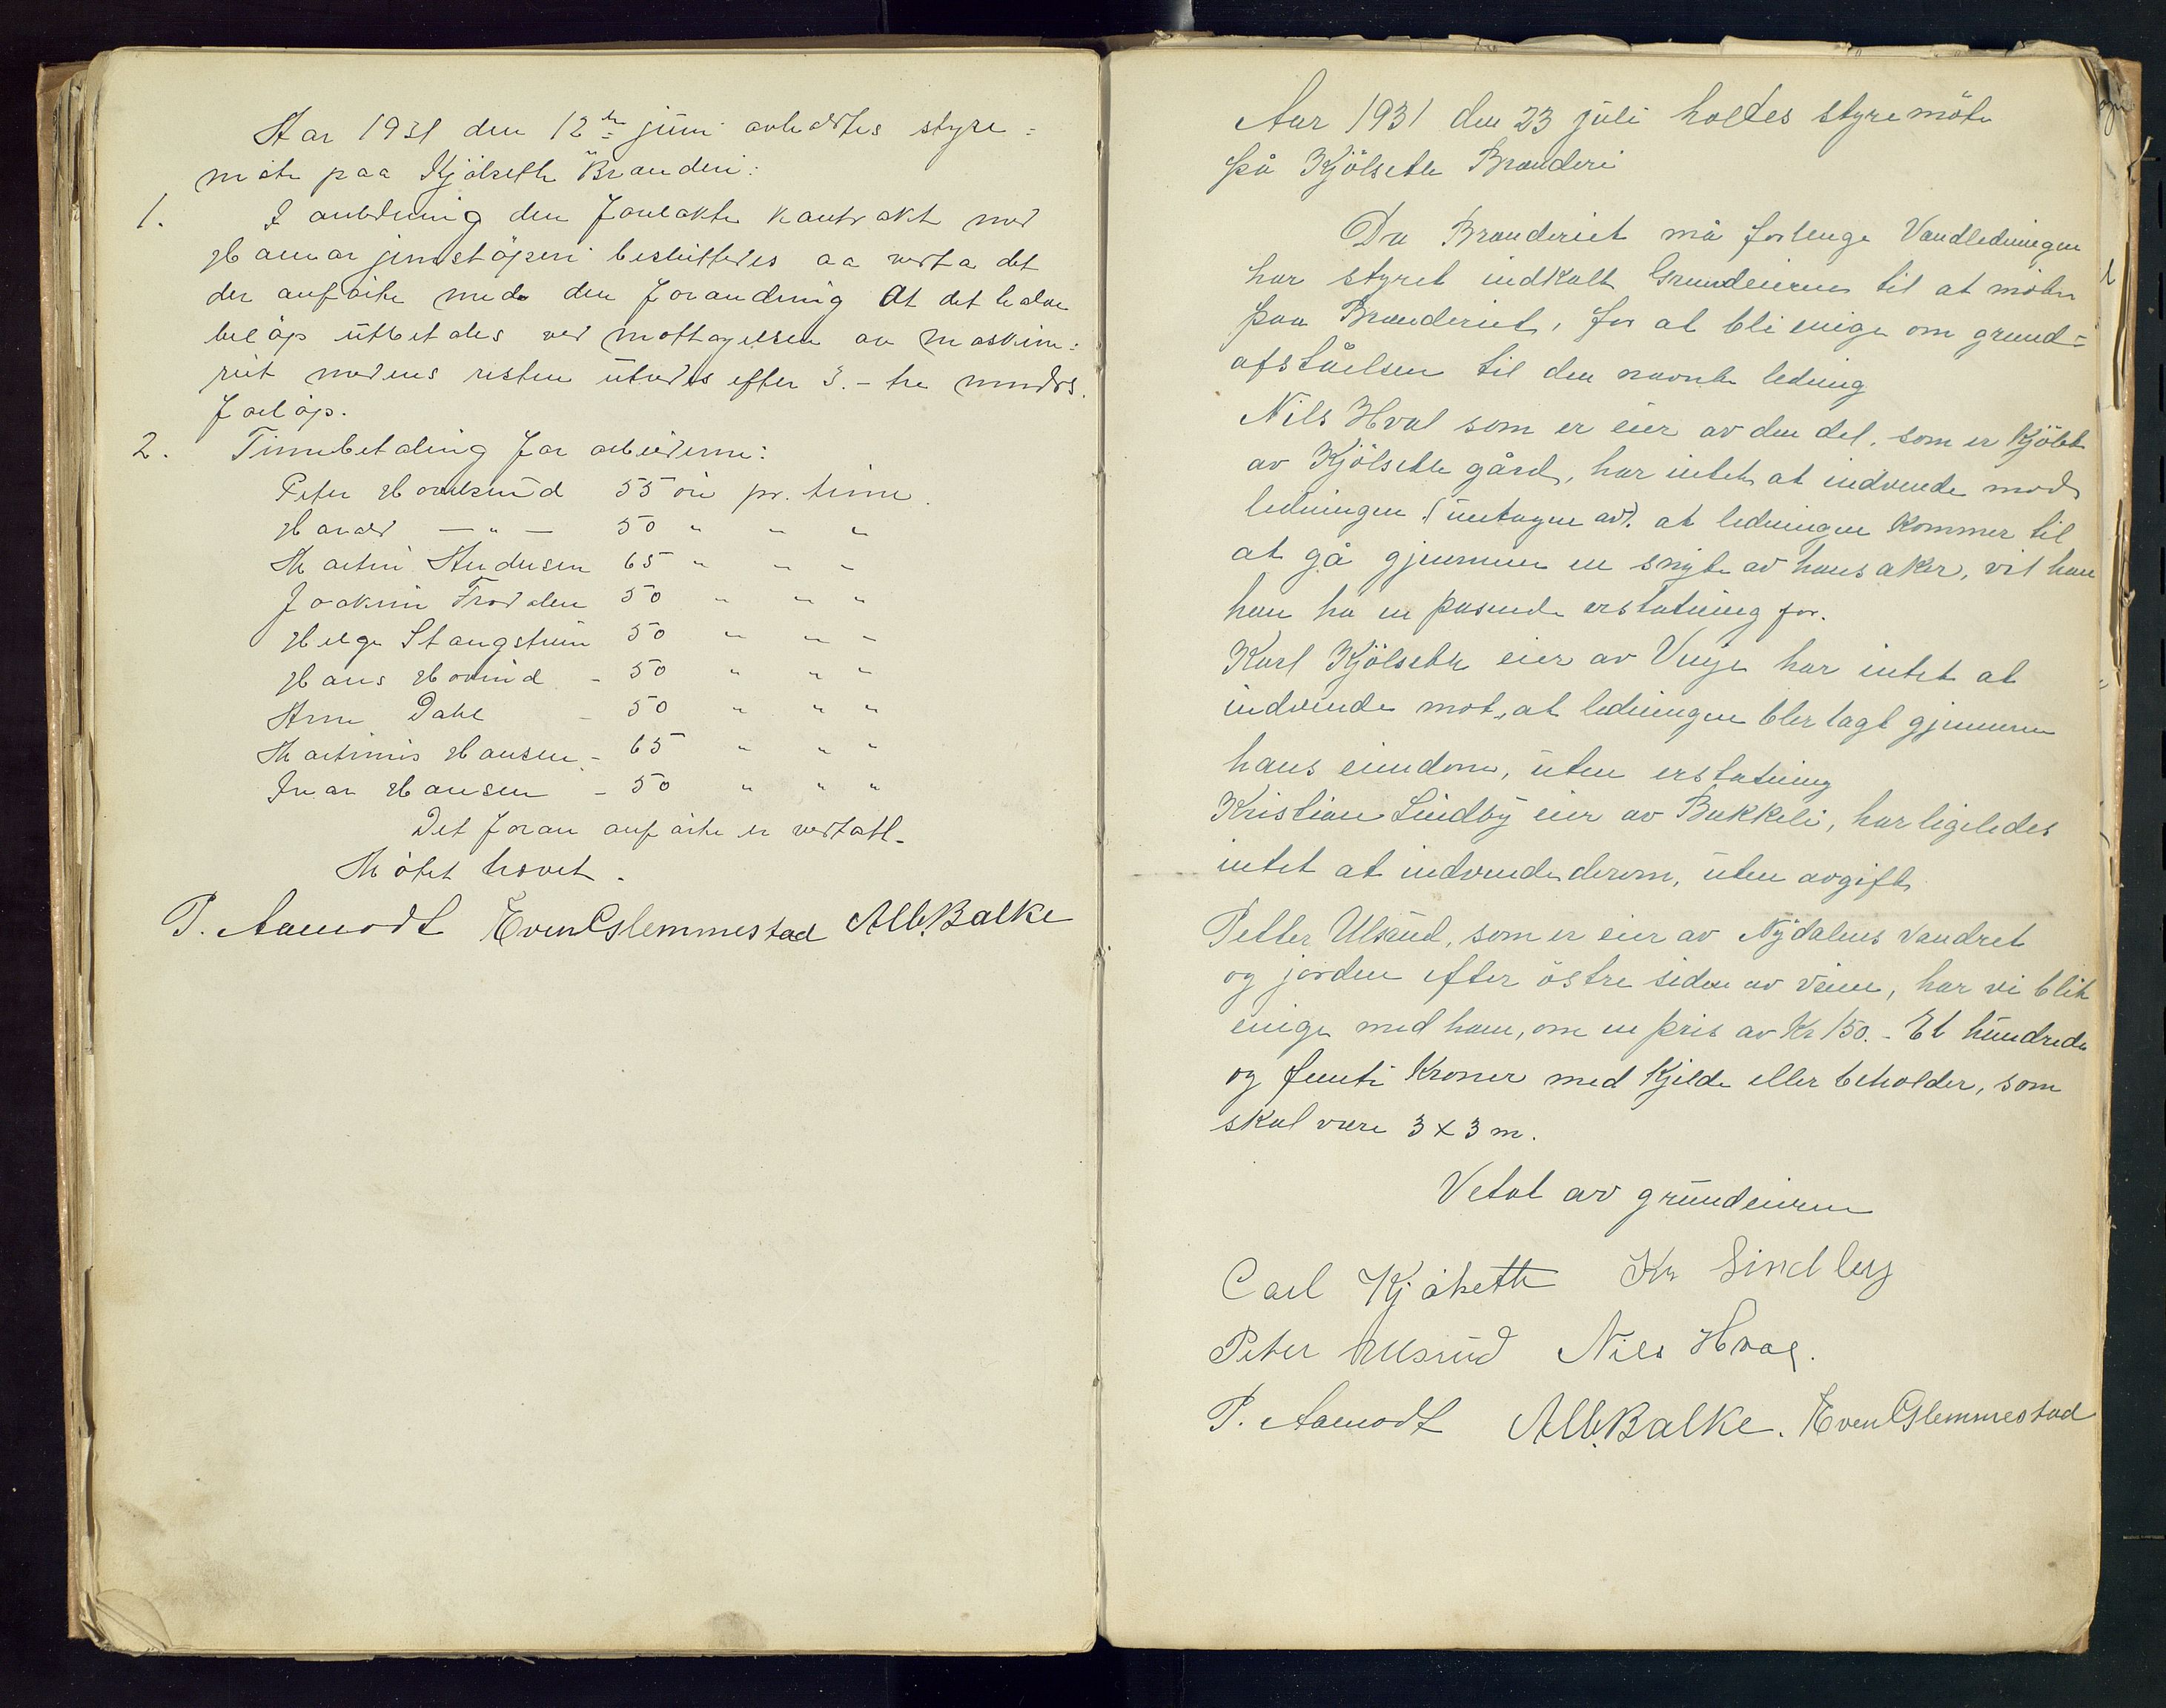 Aar 1931 den 12te juni avholdtes styre=
möte paa Kjölseth Brænderi:
1. I anledning den forelakte kontrakt med
Hamar jernstöperi besluttedes aa vedta det
der anförte med den forandring At det halve
belöp utbetales ved mottagelsen av maskine=
riet medens resten utredes efter 3.- tre mndrs.
forlöp.
2. Timebetaling for arbeiderne:
Peter Hovelsrud 55 öre pr. time.
Harald — " — 50 " " "
Martin Andersen 65 " " "
Joakim Frodalen 50 " " "
Helge Stangstuen 50 " " "
Hans Hovind - 50 " " "
Arne Dahl - 50 " " "
Martinius Hansen - 65 " " "
Ivar Hansen - 50 " " "
Det foran anförte er vedtatt-
Mötet hevet.
P. Aamodt Even Glemmestad Alb. Balke
Aar 1931 den 23 juli holdes styremöte
på Kjölseth Brænderi
Da Brænderiet må forlenge Vandledningen
har styret indkalt Grundeierne til at möte
paa Brænderiet, for at bli enige om grund=
afståelsen til den nævnte ledning
Nils Hval som er eier av den del, som er kjöbt
av Kjölseth gård, har intet at indvende mod
ledningen (untagen av). at ledningen kommer til
at gå gjennem en snyte av hans aker, vil han
han ha en pasende erstatning for.
Karl Kjölseth eier av Vinje har intet at
indvende mot, at ledningen bler lagt gjennem
hans eiendom, uten erstatning
Kristian Lindby eier av Bakkeli, har ligeledes
intet at indvende derom, uten avgift.
Petter Ulsrud, som er eier av Nydalens vandret
og jorden efter östre siden av veien, har vi blit
enige med ham, om en pris av Kr 150.- Et hundrede
og femti Kroner med Kjelde eller beholder, som
skal være 3 x 3 m.
Vetat av grundeieren
Carl Kjölseth Kr Lindby
Peter Ullsrud Nils Hval.
P. Aamodt Alb. Balke. Even Glemmestad